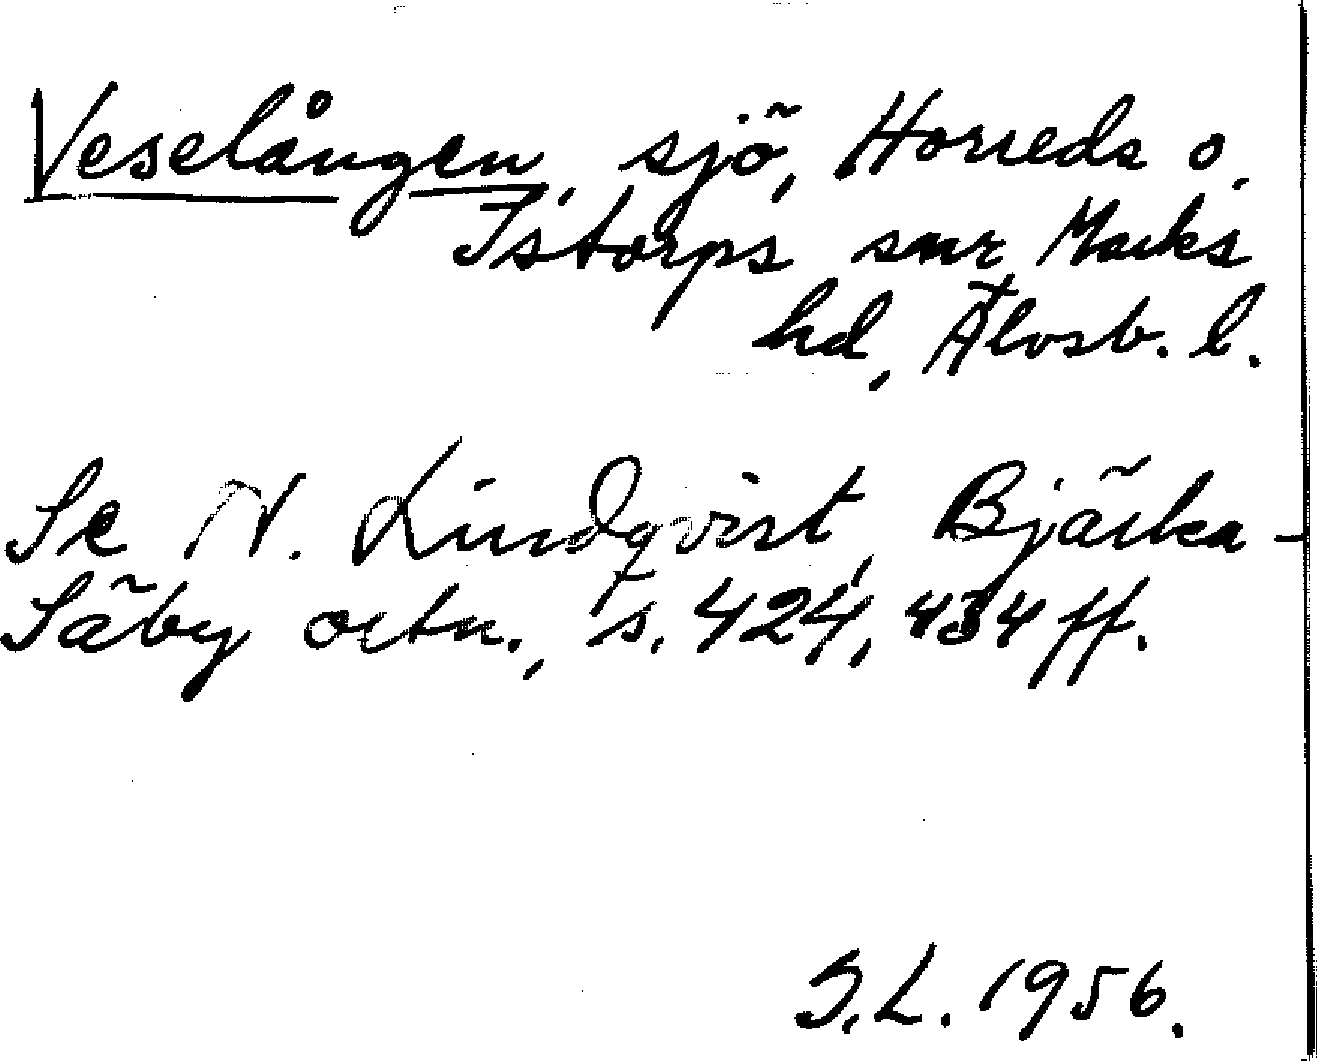 Veselången, sjö, Horreds o.
Istorps snr, Marks
hd, Älvsb. l.
Se N. Lindqvist, Bjärka-
Säby ortn., s. 424, 434 ff.
S.L. 1956.